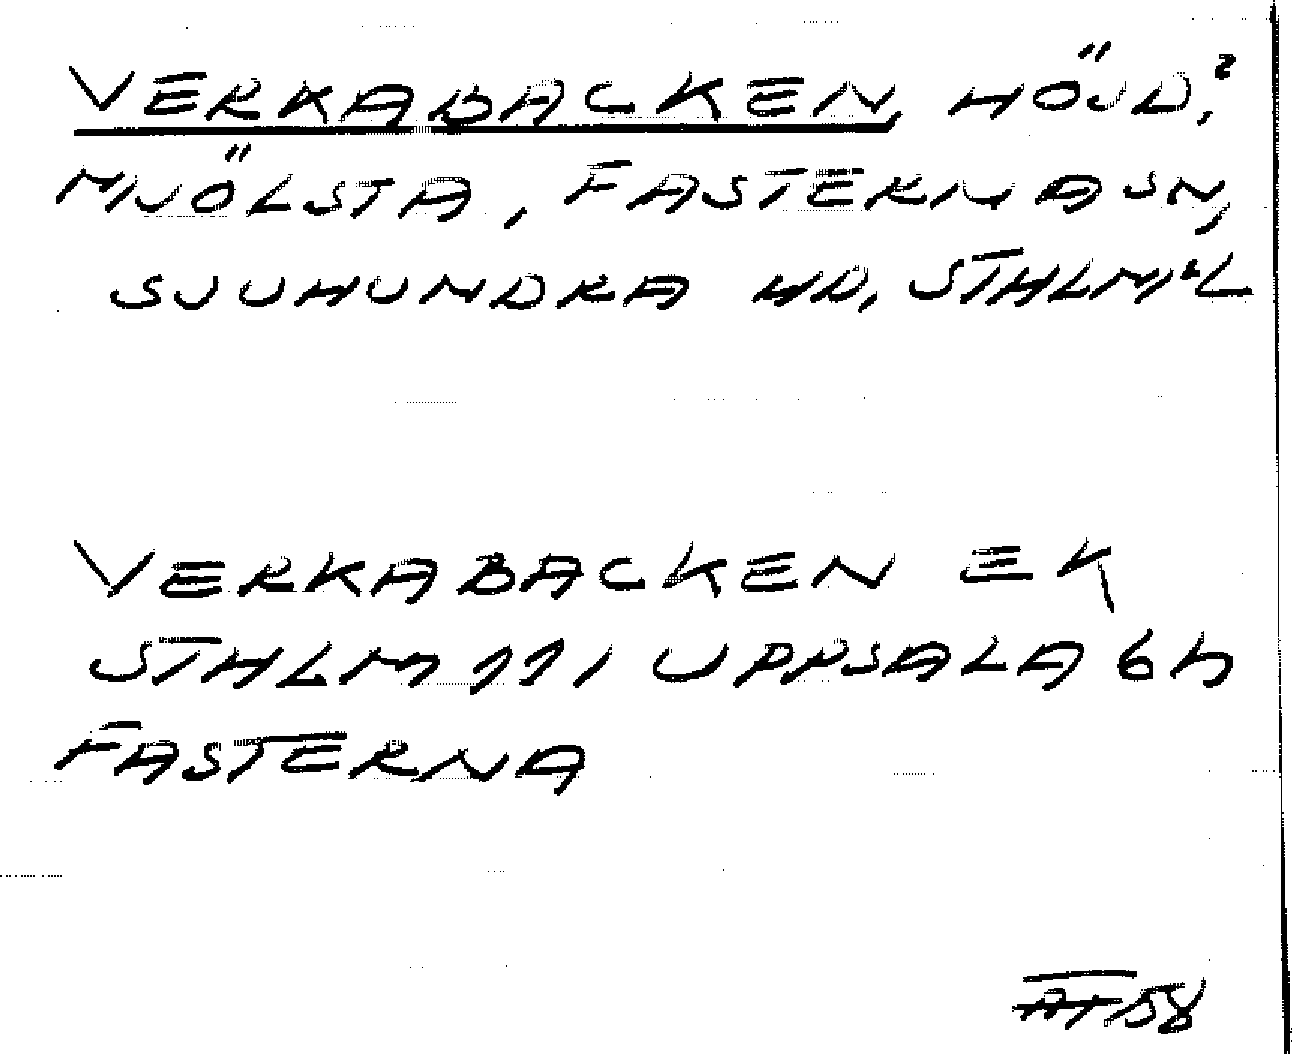 VERKABACKEN, HÖJD,?
MJÖLSTA, FASTERNA SN,
SJUHUNDRA HD, STHLMS L
VERKABACKEN EK
STHLM 111 UPPSALA 64
FASTERNA